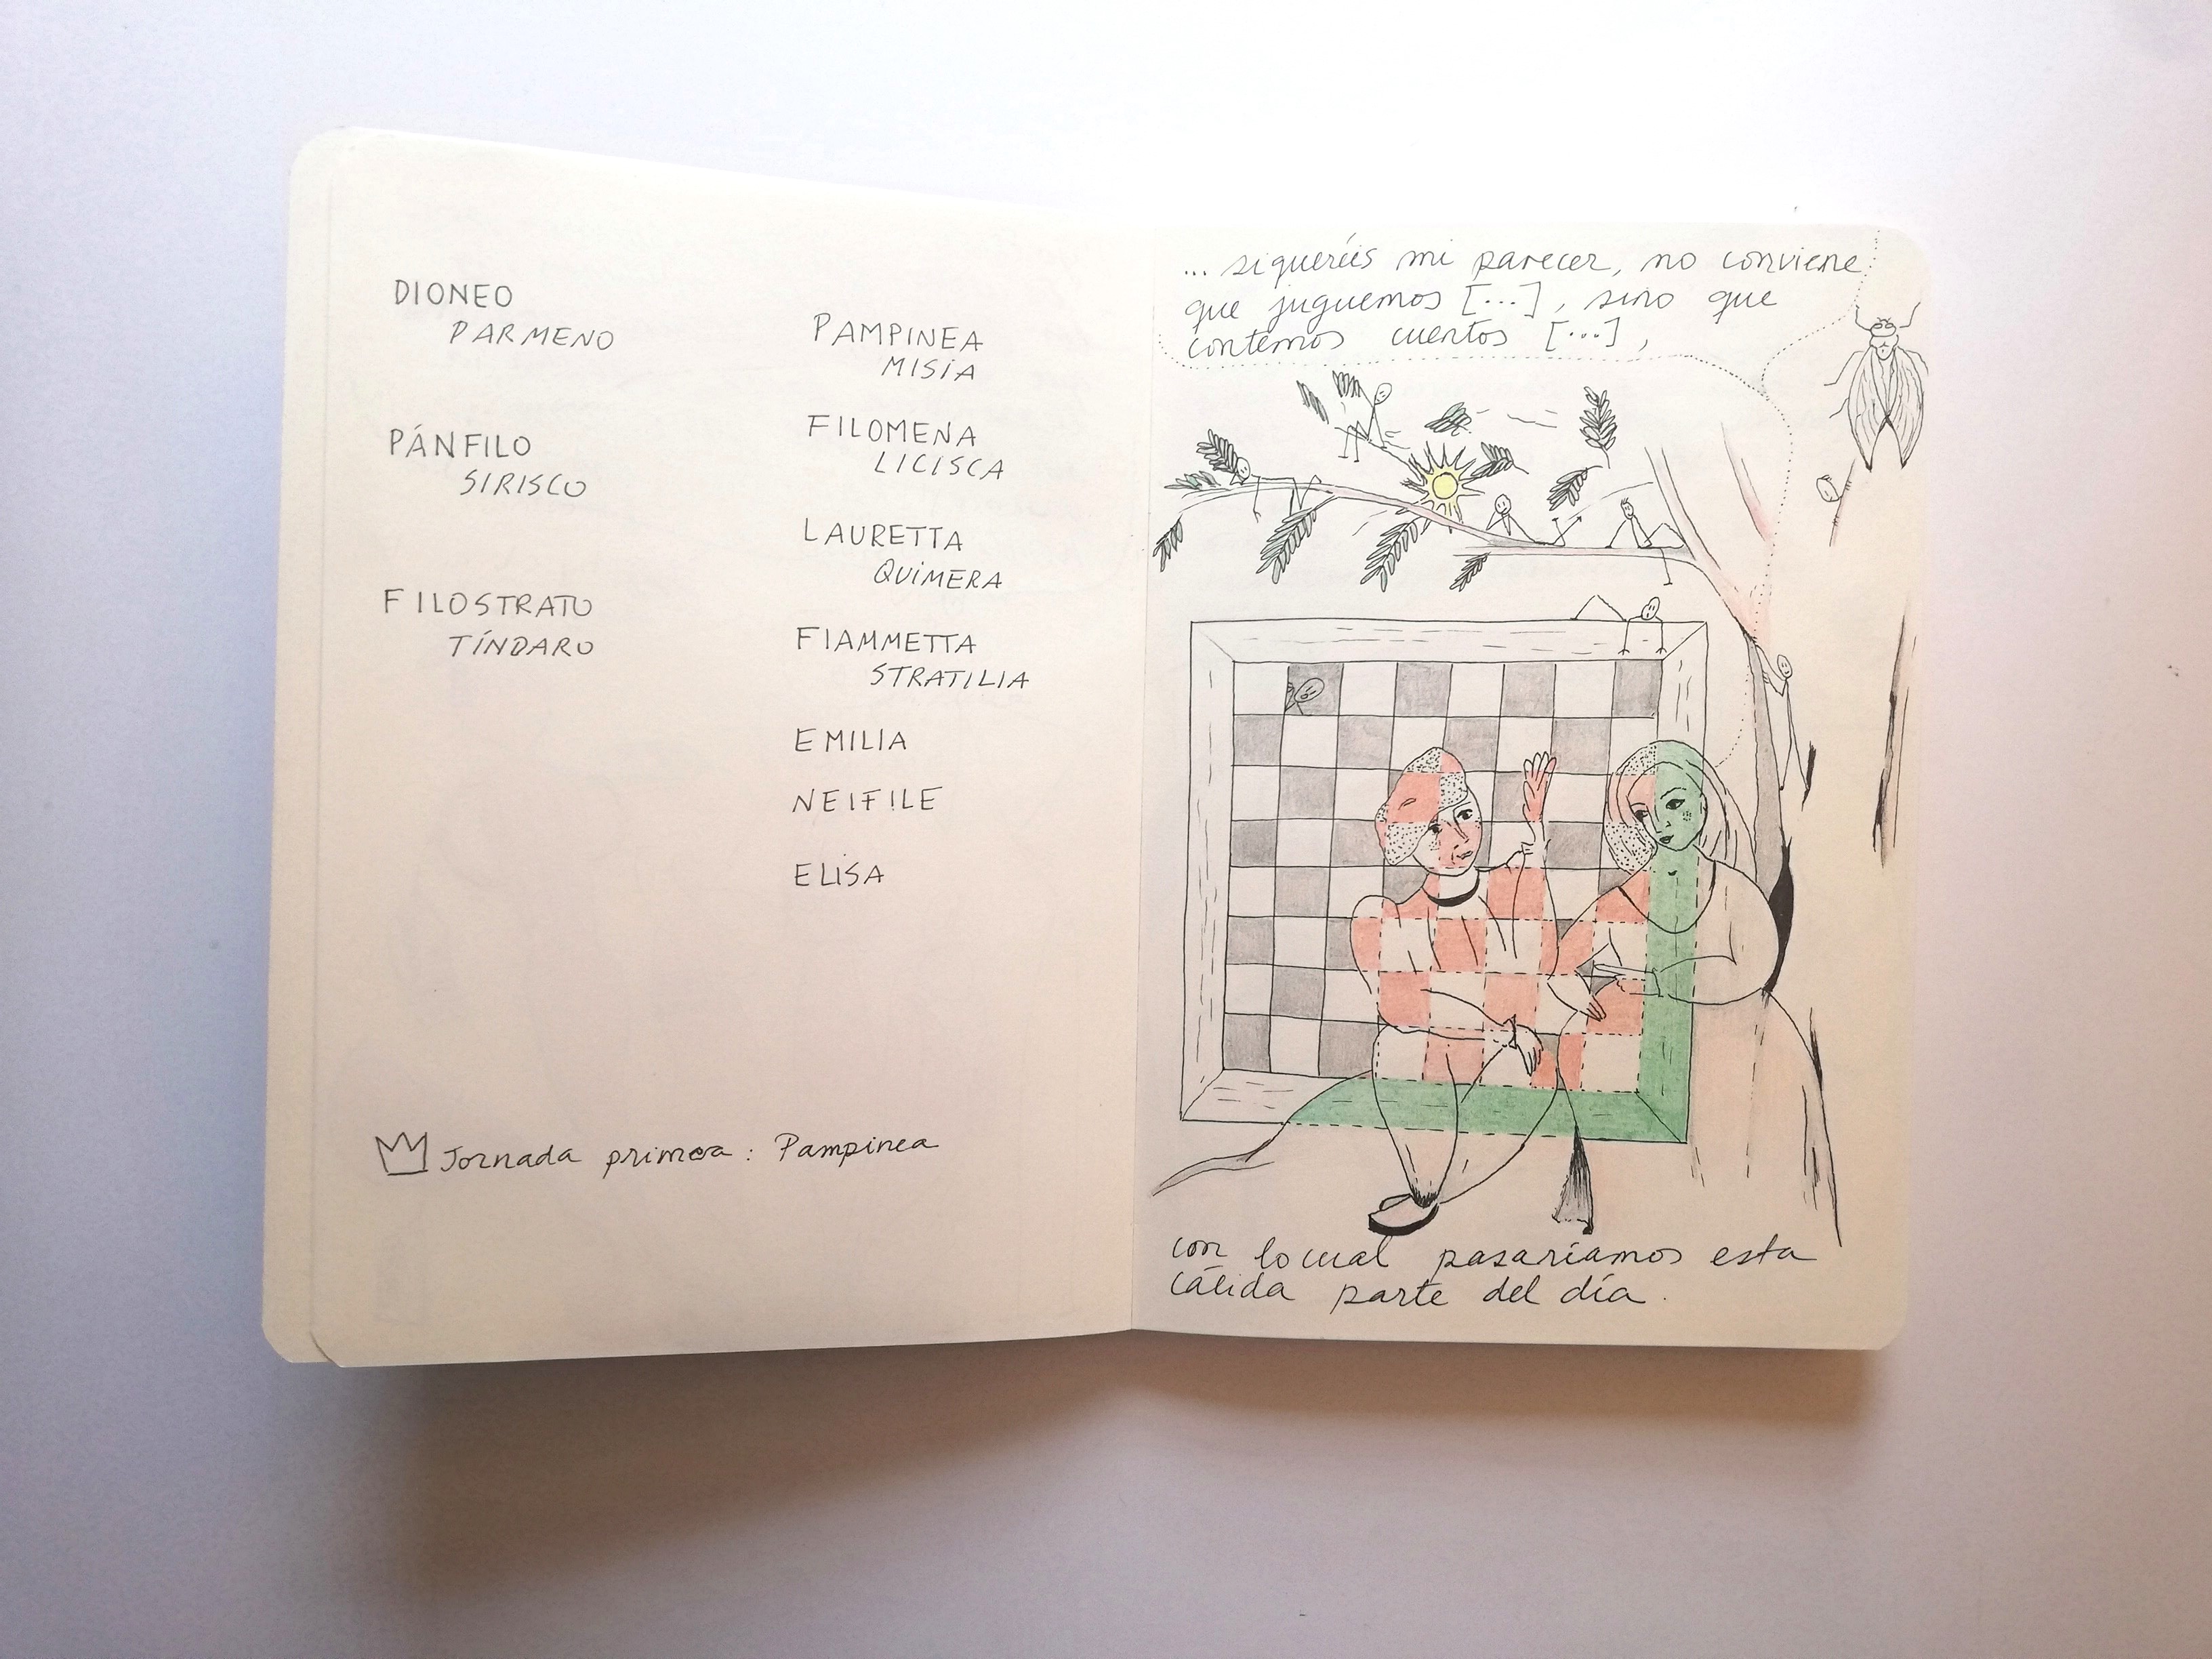 DIONEO
PARMENO
PÁNFILO
SIRISCO
FILOSTRATO
TÍNDARO
PAMPINEA
MISIA
FILOMENA
LICISCA
LAURETTA
QUIMERA
FIAMMETTA
STRATILIA
EMILIA
NEIFILE
ELISA
Jornada primera: Pampinea
... siqueréis mi parecer, no conviene
que juguemos [...], sino que
contemos cuentos [...],
con lo cual pasaríamos esta
cálida parte del día.